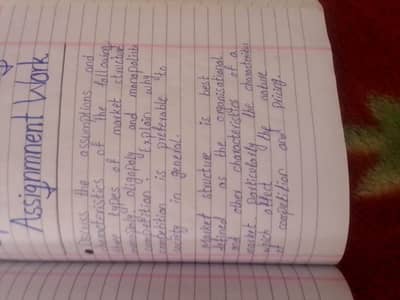 Assignment Work
Discuss the assumptions and
characteristics of the following
types of market structure
monopoly oligopoly and monopolistic
competition. Explain why
competition is preferable to
society in general.
Market structure is best
defined as the organisational
and other characteristics of a
market. Particularly the characteristics
which affect the nature
of competition and pricing.